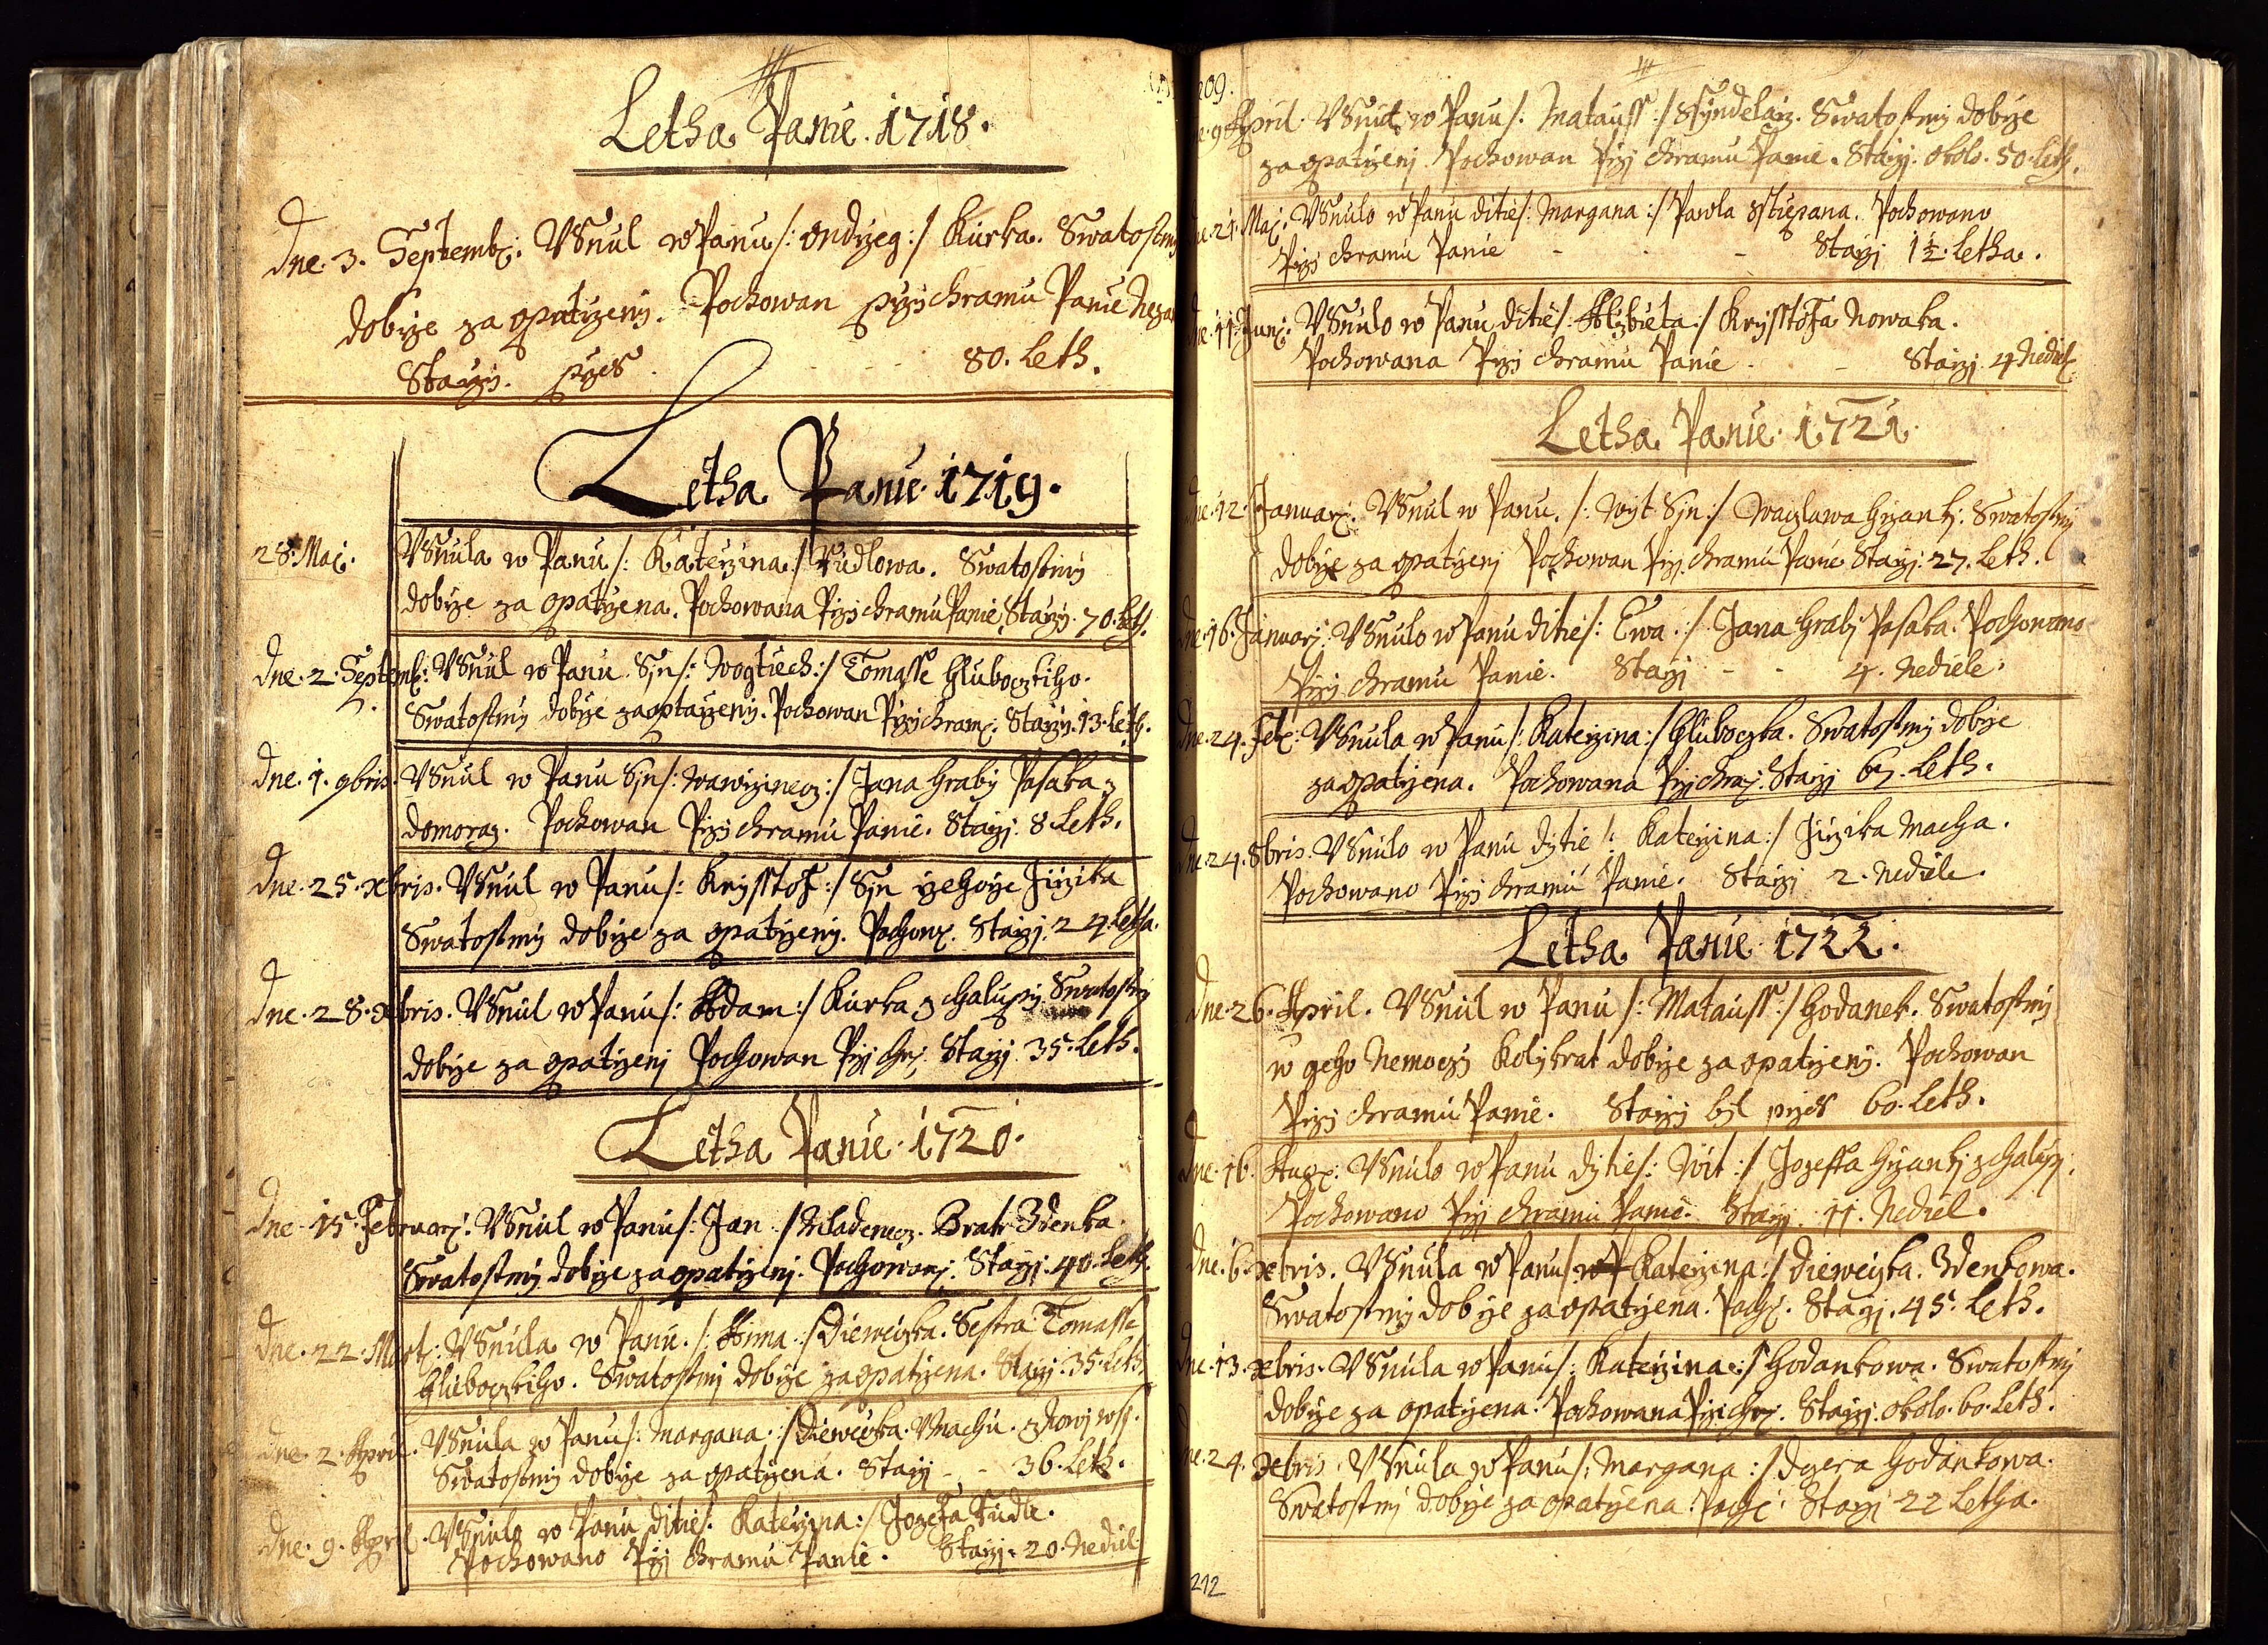 Letha Panie 1718.
dne. 3. Septemb: VSnul w Panu /: Ondrzeg :/ Kurka. Swatostmi
dobrze za opatrzeny. Pochowan przi chramu Panie
Starzi. przes 80. Leth.
Letha Panie 1719.
28. Maj. VSnula w Panu /: Katerzina :/ Rudlowa. Swatostmi
dobrze za opatrzena. Pochowana Przi chramu Panie, Starzi. 70. Leth.
dne. 2. Septemb: VSnul w Panu Syn /: Wogtiech :/ Tomasse Hlubocztiho.
Swatostmi dobrze zaoptarzeny. Pochowan Przi chram: Starzi. 13. Leth.
dne. 1. 9bris. VSnul w Panu Syn /: Wawrzinecz :/ Jana Hraby Pasaka z
domoraz. Pochowan Przi chramu Panie. Starzi. 8 Leth.
dne. 25. xbris. VSnul w Panu /: Krysstof :/ Syn Jirzika
Swatostmi dobrze za opatrzeny. Pochow: Starzi. 24. Letha.
dne. 28. xbris. VSnul w Panu /: Adam :/ Kurka z Chalupy. Swatostmi
dobrze za opatrzeni Pochowan Przi chr: Starzi. 35. Leth.
Letha Panie 1720.
dne 15. Februarj: VSnul w Panu /: Jan :/ Mladenecz. Bratr Zdenka.
Swatostmi dobrze za opatrzeni. Pochowan: Starzi. 40. Leth.
dne. 22. Mart: VSnula w Panu. /: Anna :/ Dieweczka. Sestra Tomasse
Hlubocztiho. Swatostmi dobrze za opatrzena. Starzi. 35. Leth.
dne. 2. April. VSnula w Panu /: Margana :/ Dieweczka. Machu.
Swatostmi dobrze za opatrzena. Starzi - - 36. Leth.
dne. 9. April. VSnulo w Panu ditie /: Katerzina :/ Jozefa Rudle.
Pochowano Przi chramu Panie. Starzi. 20. Nediel
209.
9 April. VSnul w Panu /: Matauss :/ Ssyndelarz. Swatostmi dobrze
za opatrzeni Pochowan Przi chramu Panie. Starzi. okolo. 50. Leth.
dne. 21. Maj: VSnulo w Panu ditie /: Margana :/ Pawla Sstiepana. Pochowano
Przi chramu Panie - - - Starzi 1 1/2. Letha.
dne. 11. Junj: VSnulo w Panu ditie /: Alzbieta :/ Krysstofa Nowaka.
Pochowana Przi chramu Panie - - Starzi. 4 Nediel
Letha Panie 1721.
dne. 12. Januarj. VSnul w Panu. /: Wyt Syn :/ Waczlawa Hrzanki. Swatostmi
dobrze za opatrzeni Pochowan Przi chramu Panie Starzi. 27. Leth.
dne. 16. Januarj. VSnulo w Panu ditie /: Ewa :/ Jana Hrabi Pasaka. Pochowano
Przi chramu Panie. Starzi - - 4. Nediele.
dne. 24. Feb: VSnula w Panu /: Katerzina :/ Hluboczka. Swatostmi dobrze
za opatrzena. Pochowana Przi chra: Starzi 67. Leth.
dne. 24. 8bris. VSnulo w Panu dytie /: Katerzina :/ Jirzika Macha.
Pochowano Przi chramu Panie. Starzi 2. Nediele.
Letha Panie 1722.
dne. 26. April. VSnul w Panu /: Matauss :/ Hodanek. Swatostmi
w geho Nemoczi Kolikrat dobrze za opatrzeny. Pochowan
Przi chramu Panie. Starzi byl przes 60. Leth.
dne. 16. Aug: VSnulo w Panu dytie /: Wit :/ Jozeffa Hrzanki z Halup:
Pochowano Przi chramu Panie. Starzi. 11. Nediel.
dne. 6. xbris. VSnula w Panu /: Katerzina :/ Dieweczka. Zdenkowa.
Swatostmi dobrze za opatrzena. Poch: Starzi. 45. Leth.
dne. 13. xbris. VSnula w Panu /: Katerzina :/ Hodankowa. Swatostmi
dobrze za opatrzena. Pochowana Przi chr: Starzi. okolo. 60. Leth.
dne. 24. xbris. VSnula w Panu /: Margana :/ dczera Hodankowa.
Swatostmi dobrze za opatrzena. Poch: Starzi 22 Letha.
212